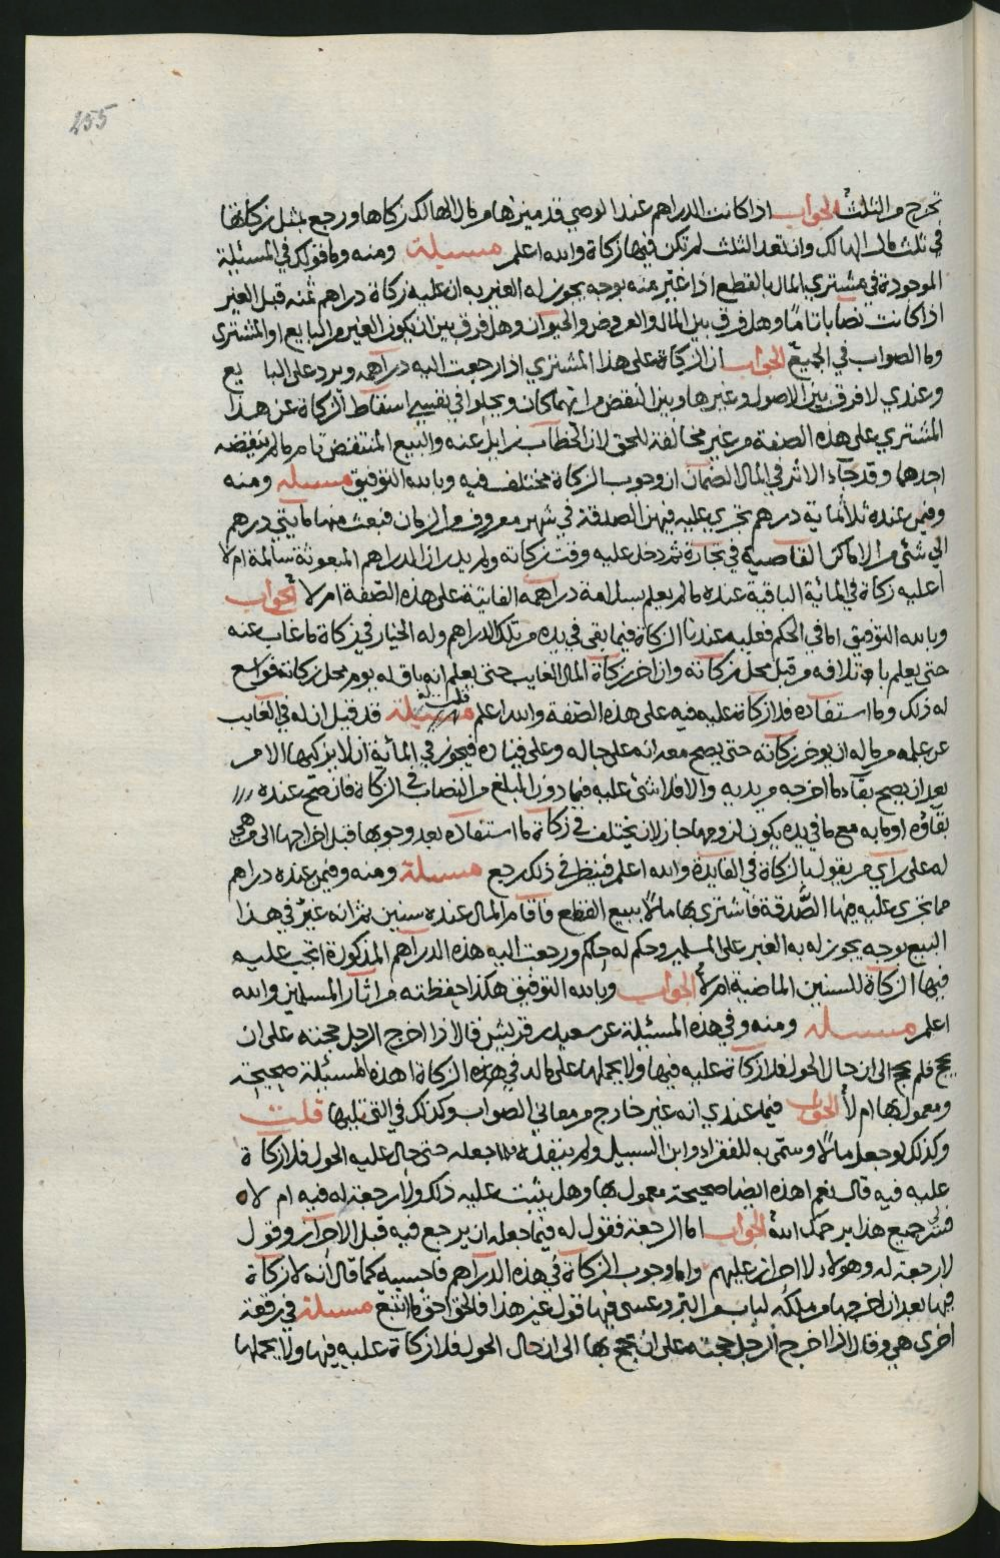 255
تخرج من الثلث الجواب اذا كانت الدراهم عند الوصي قد ميزها من مال الهالك زكاها ورجع بمثل زكاتها
في ثلث مال الهالك وان تعد الثلث لم تكن فيها زكاة والله اعلم مسئلة ومنه وما قولك في المسئلة
الموجودة في مشتري المال بالقطع اذا غير منه بوجه يجوز له الغير به ان عليه زكاة دراهم ثمنه قبل الغير
اذا كانت نصابا تاما وهل فرق بين المال والعروض والحيوان وهل فرق بين ان يكون الغير من البايع او المشتري
وما الصواب في الجميع الجواب ان الزكاة على هذا المشتري اذا رجعت اليه دراهمه ويرد على البا يع
وعندي لا فرق بين الاصول وغيرها وبين النقض من ايهما كان ويحلوا في نفسي اسقاط الزكاة عن هذا
المشتري على هذه الصفة من غير مخالفة للحق لان الخطاب زايل عنه والبيع المنتقض تام ما لم ينقضه
احدها وقد جاء الاثر في المال الضمان ان وجوب الزكاة مختلف فيه وبالله التوفيق مسئله ومنه
وفيمن عنده ثلاثماية درهم تجري عليه فيهن الصدقة في شهر معروف من الزمان فبعث منها مايتي درهم
الى شئ من الاماكن القاصية في تجارة ثم دخل عليه وقت زكاته ولم يدر ان الدراهم المبعوثة سالمة ام لا
اعليه زكاة في المائة الباقية عنده ما لم يعلم بسلامة دراهمه الفانية على هذه الصفة ام لا الجواب
وبالله التوفيق اما في الحكم فعليه عندنا الزكاة فيما بقي في يده من تلك الدراهم وله الخيار في زكاة ما غاب عنه
حتى يعلم با تلافه من قبل محل زكاته وان اخر زكاة المال الغايب حتى يعلم انه باق له يوم محل زكاته فواسع
له ذلك وما استفاده فلا زكاة عليه فيه على هذه الصفة والله اعلم مسئلة قد قيل ان له في الغايب
عن علمه من ماله ان يوخر زكاته حتى يصح معه انه على حاله وعلى قياده فيجوز في المائية ان لا يزكيها الا من
بعد ان يصح بقاء ما اخرجه من يديه والا فلا شئ عليه فيما دون المبلغ من النصاب في الزكاة فان صح عنده
بقاؤه او ما به مع ما في يده يكون لزومها جاز لان يختلف في زكاة ما استفاده بعد وجوبها قبل اخراجها الى من هي
له على راي من يقول بالزكاة في الفايدة والله اعلم فينظر في ذلك رجع مسئلة ومنه وفيمن عنده دراهم
مما تجري عليه فيها الصدقة فاشترى بها مالا ببيع القطع فاقام المال عنده سنين ثم انه غير في هذا
البيع بوجه يجوز له به الغير على المسلمين وحكم له حاكم ورجعت اليه هذه الدراهم المذكورة اتجب عليه
فيها الزكاة للسنين الماضية ام لا الجواب وبالله التوفيق هكذا حفظته من اثار المسلمين والله
اعلم مسئله ومنه وفي هذه المسئلة عن سعيد بن قريش قال اذا اخرج الرجل حجته على ان
يحج فلم يحج الى ان حال الحول فلا زكاة عليه فيها ولا يحملها على ماله في هذه الزكاة اهذه المسئلة صحيحة
ومعمول بها ام لا الجواب فيما عندي انه غير خارج من معاني الصواب وكذلك في التي تليها قلت
وكذلك لو جعل مالا وسمى به للفقراء او ابن السبيل ولم ينفذه فيما جعله حتى حال عليه الحول فلا زكا ة
عليه فيه قال نعم اهذه ايضا صحيحة معمول بها وهل يثبت عليه ذلك ولا رجعة له فيه ام لا
فسر لي جميع هذا يرحمك الله الجواب اما الرجعة فقول له فيما جعله ان يرجع فيه قبل الاحراز وقول
لا رجعة له وهولاء لا احراز عليهم واما وجوب الزكاة في هذه الدراهم فاحسبه كما قال انه لا زكاة
فيها بعد ان اخرجها من ملكه لباب من البر وعسى فيها قول غير هذا فالحق احق ما اتبع مسئلة في رقعة
اخرى هي وقال اذا اخرج الرجل حجته على ان يحج بها الى ان حال الحول فلا زكاة عليه فيها ولا يحملها